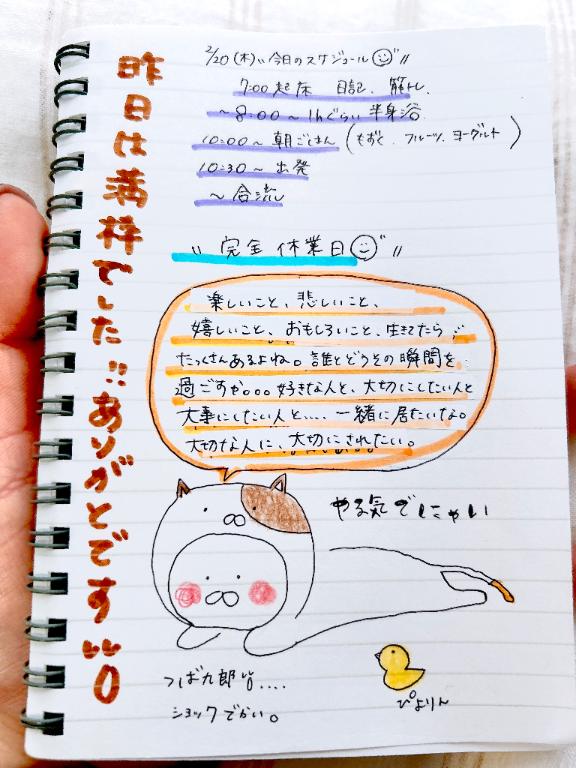 昨日は満枠でした!!ありがとです!!
2/20(木)"今日のスケジュール"
7:00 起床 日記、筋トレ
~8:00~1hぐらい半身浴
10:00~朝ごはん(もずく、フルーツ、ヨーグルト)
10:30~出発
~合流
"完全休業日"
楽しいこと、悲しいこと、
嬉しいこと、おもしろいこと、生きてたら
たっくさんあるよね。誰とどうその瞬間を
過ごすか。。。好きな人と、大切にしたい人と
大事にしたい人と.... 一緒に居たいな。
大切な人に、大切にされたい。
やる気でにゃい
つば九郎
ショックでかい。
ぴよりん